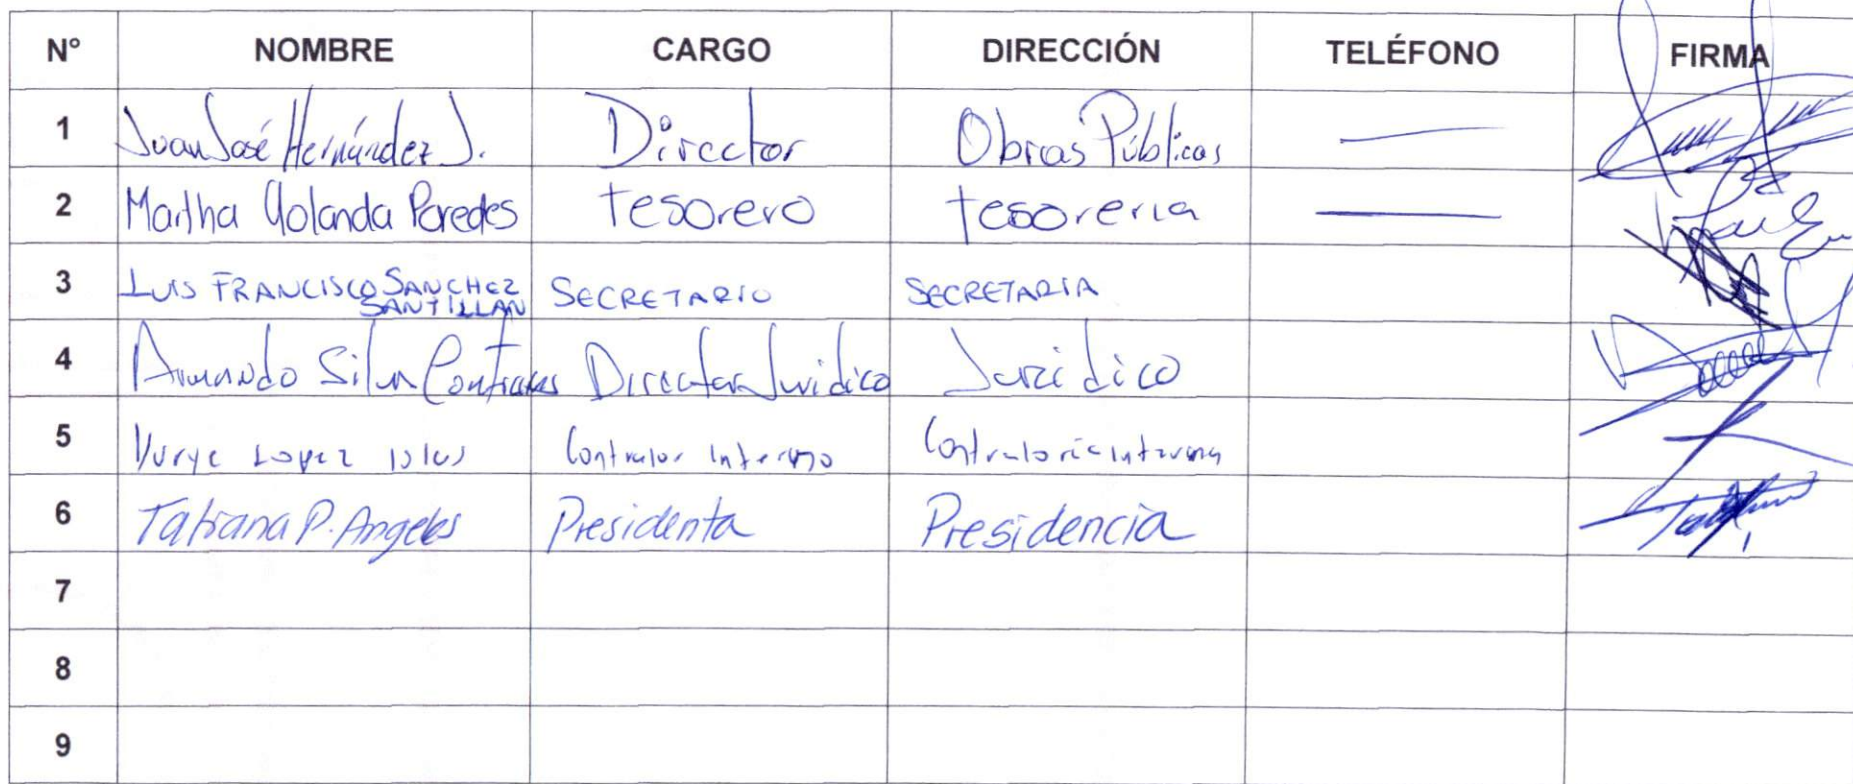 N° NOMBRE CARGO DIRECCIÓN TELÉFONO FIRMA
1 Juan José Hernández J. Director Obras Públicas —
2 Martha Yolanda Paredes Tesorero Tesoreria —
3 LUIS FRANCISCO SANCHEZ SECRETARIO SECRETARIA
SANTILLAN
4 Armando Silva Contreras Director Juridico Juridico
5 Lopez Contralor Interno Contraloria interna
6 Tatiana P. Angeles Presidenta Presidencia
7
8
9